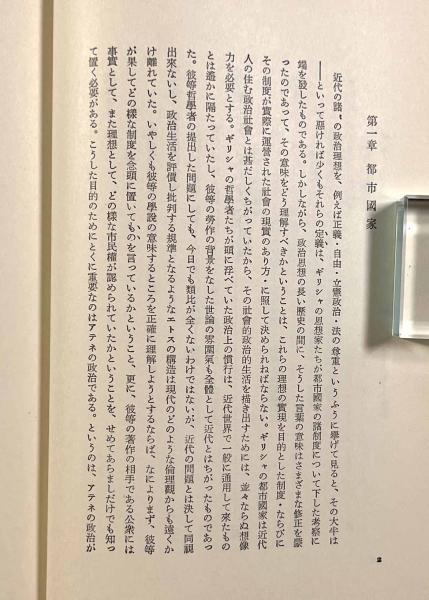 第一章 都市國家
近代の諸々の政治理想を、例えば正義・自由・立憲政治・法の尊重というふうに擧げて見ると、その大半は
――といって惡ければ少くもそれらの定義は、ギリシャの思想家たちが都市國家の諸制度について下した考察に
端を發したものである。しかしながら、政治思想の長い歷史の間に、そうした言葉の意味はさまざまな修正を蒙
ったのであって、その意味をどう理解すべきかということは、これらの理想の實現を目的とした制度・ならびに
その制度が實際に運營された社會の現實のあり方・に照して決められねばならない。ギリシャの都市國家は近代
人の住む政治社會とは甚だしくちがっていたから、その社會的政治的生活を描き出すためには、並々ならぬ想像
力を必要とする。ギリシャの哲學者たちが頭に浮べていた政治上の慣行は、近代世界で一般に通用して來たもの
とは遙かに隔たっていたし、彼等の勞作の背景をなした世論の雰圍氣も全體として近代とはちがったものであっ
た。彼等哲學者の提出した問題にしても、今日でも類比が全くないわけではないが、近代の問題とは決して同視
出來ないし、政治生活を評價し批判する規準となるようなエトスの構造は現代のどのような倫理觀からも遠くか
け離れていた。いやしくも彼等の學說の意味するところを正確に理解しようとするならば、なによりまず、彼等
が果してどの樣な制度を念頭に置いてものを言っているかということ、更に、彼等の著作の相手である公衆には
事實として、また理想として、どの樣な市民權が認められていたかということを、せめてあらましだけでも知っ
て置く必要がある。こうした目的のためにとくに重要なのはアテネの政治である。というのは、アテネの政治が
2